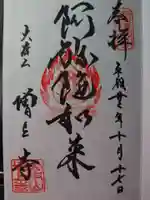 奉拝
平成廿年十月十七日
阿弥陀如来
大本山
増上寺